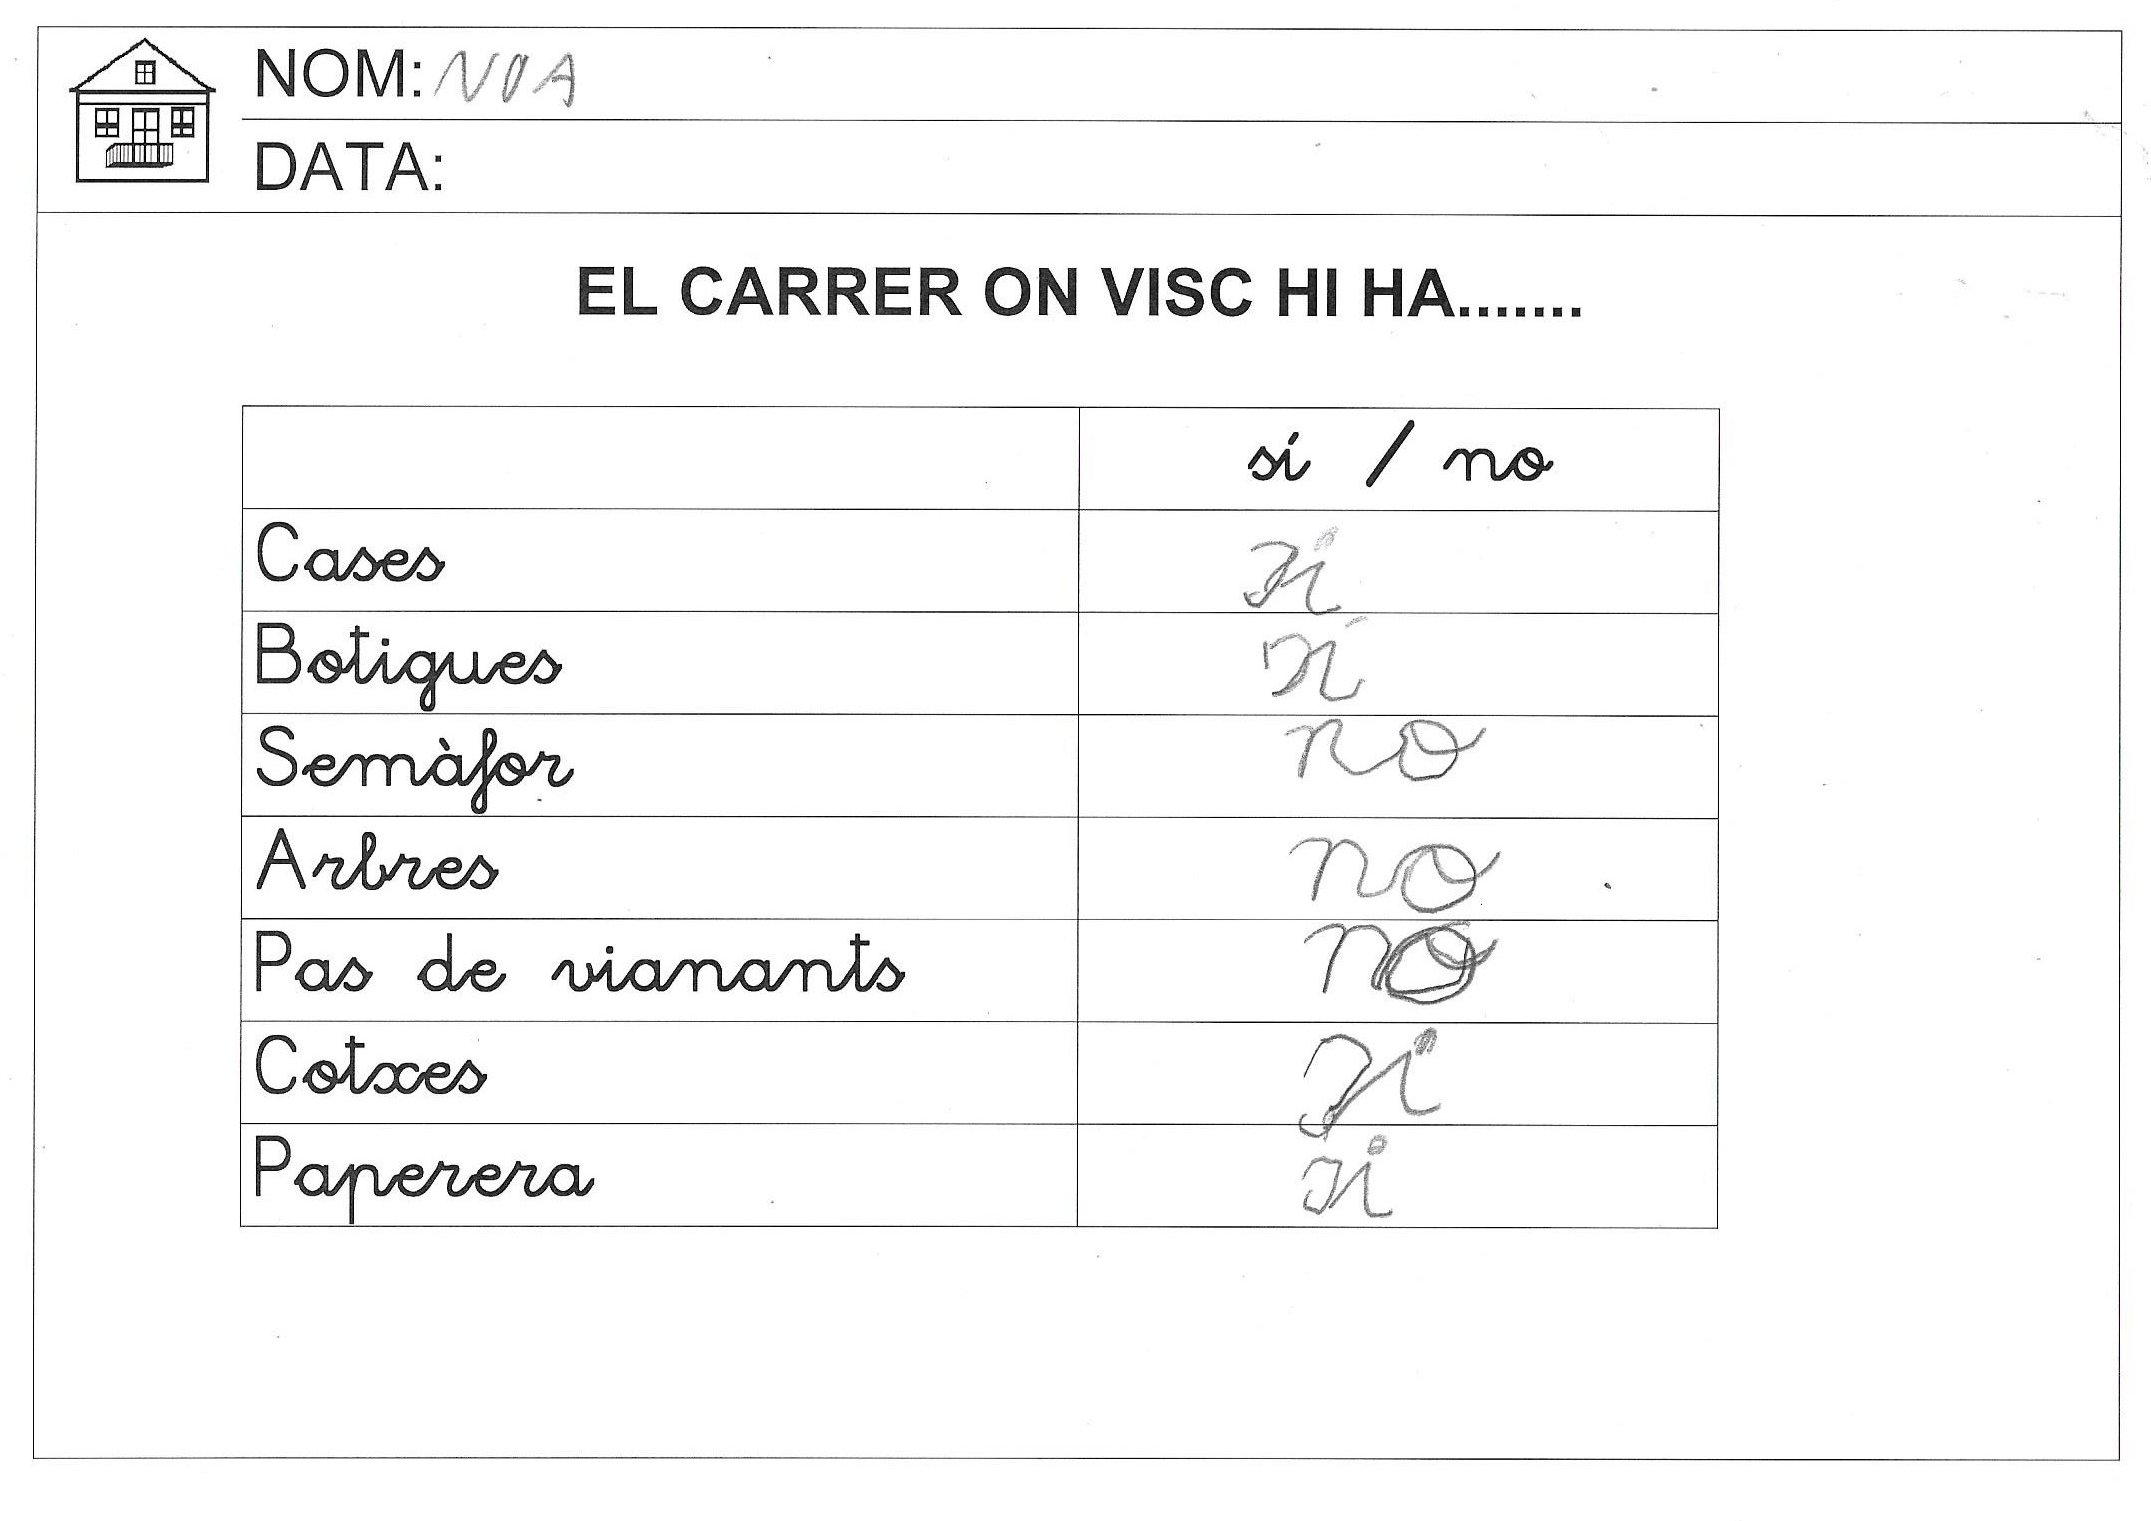 NOM: NOA
DATA:
EL CARRER ON VISC HI HA.......
sí / no
Cases si
Botigues sí
Semàfor no
Arbres no
Pas de vianants no
Cotxes si
Paperera si